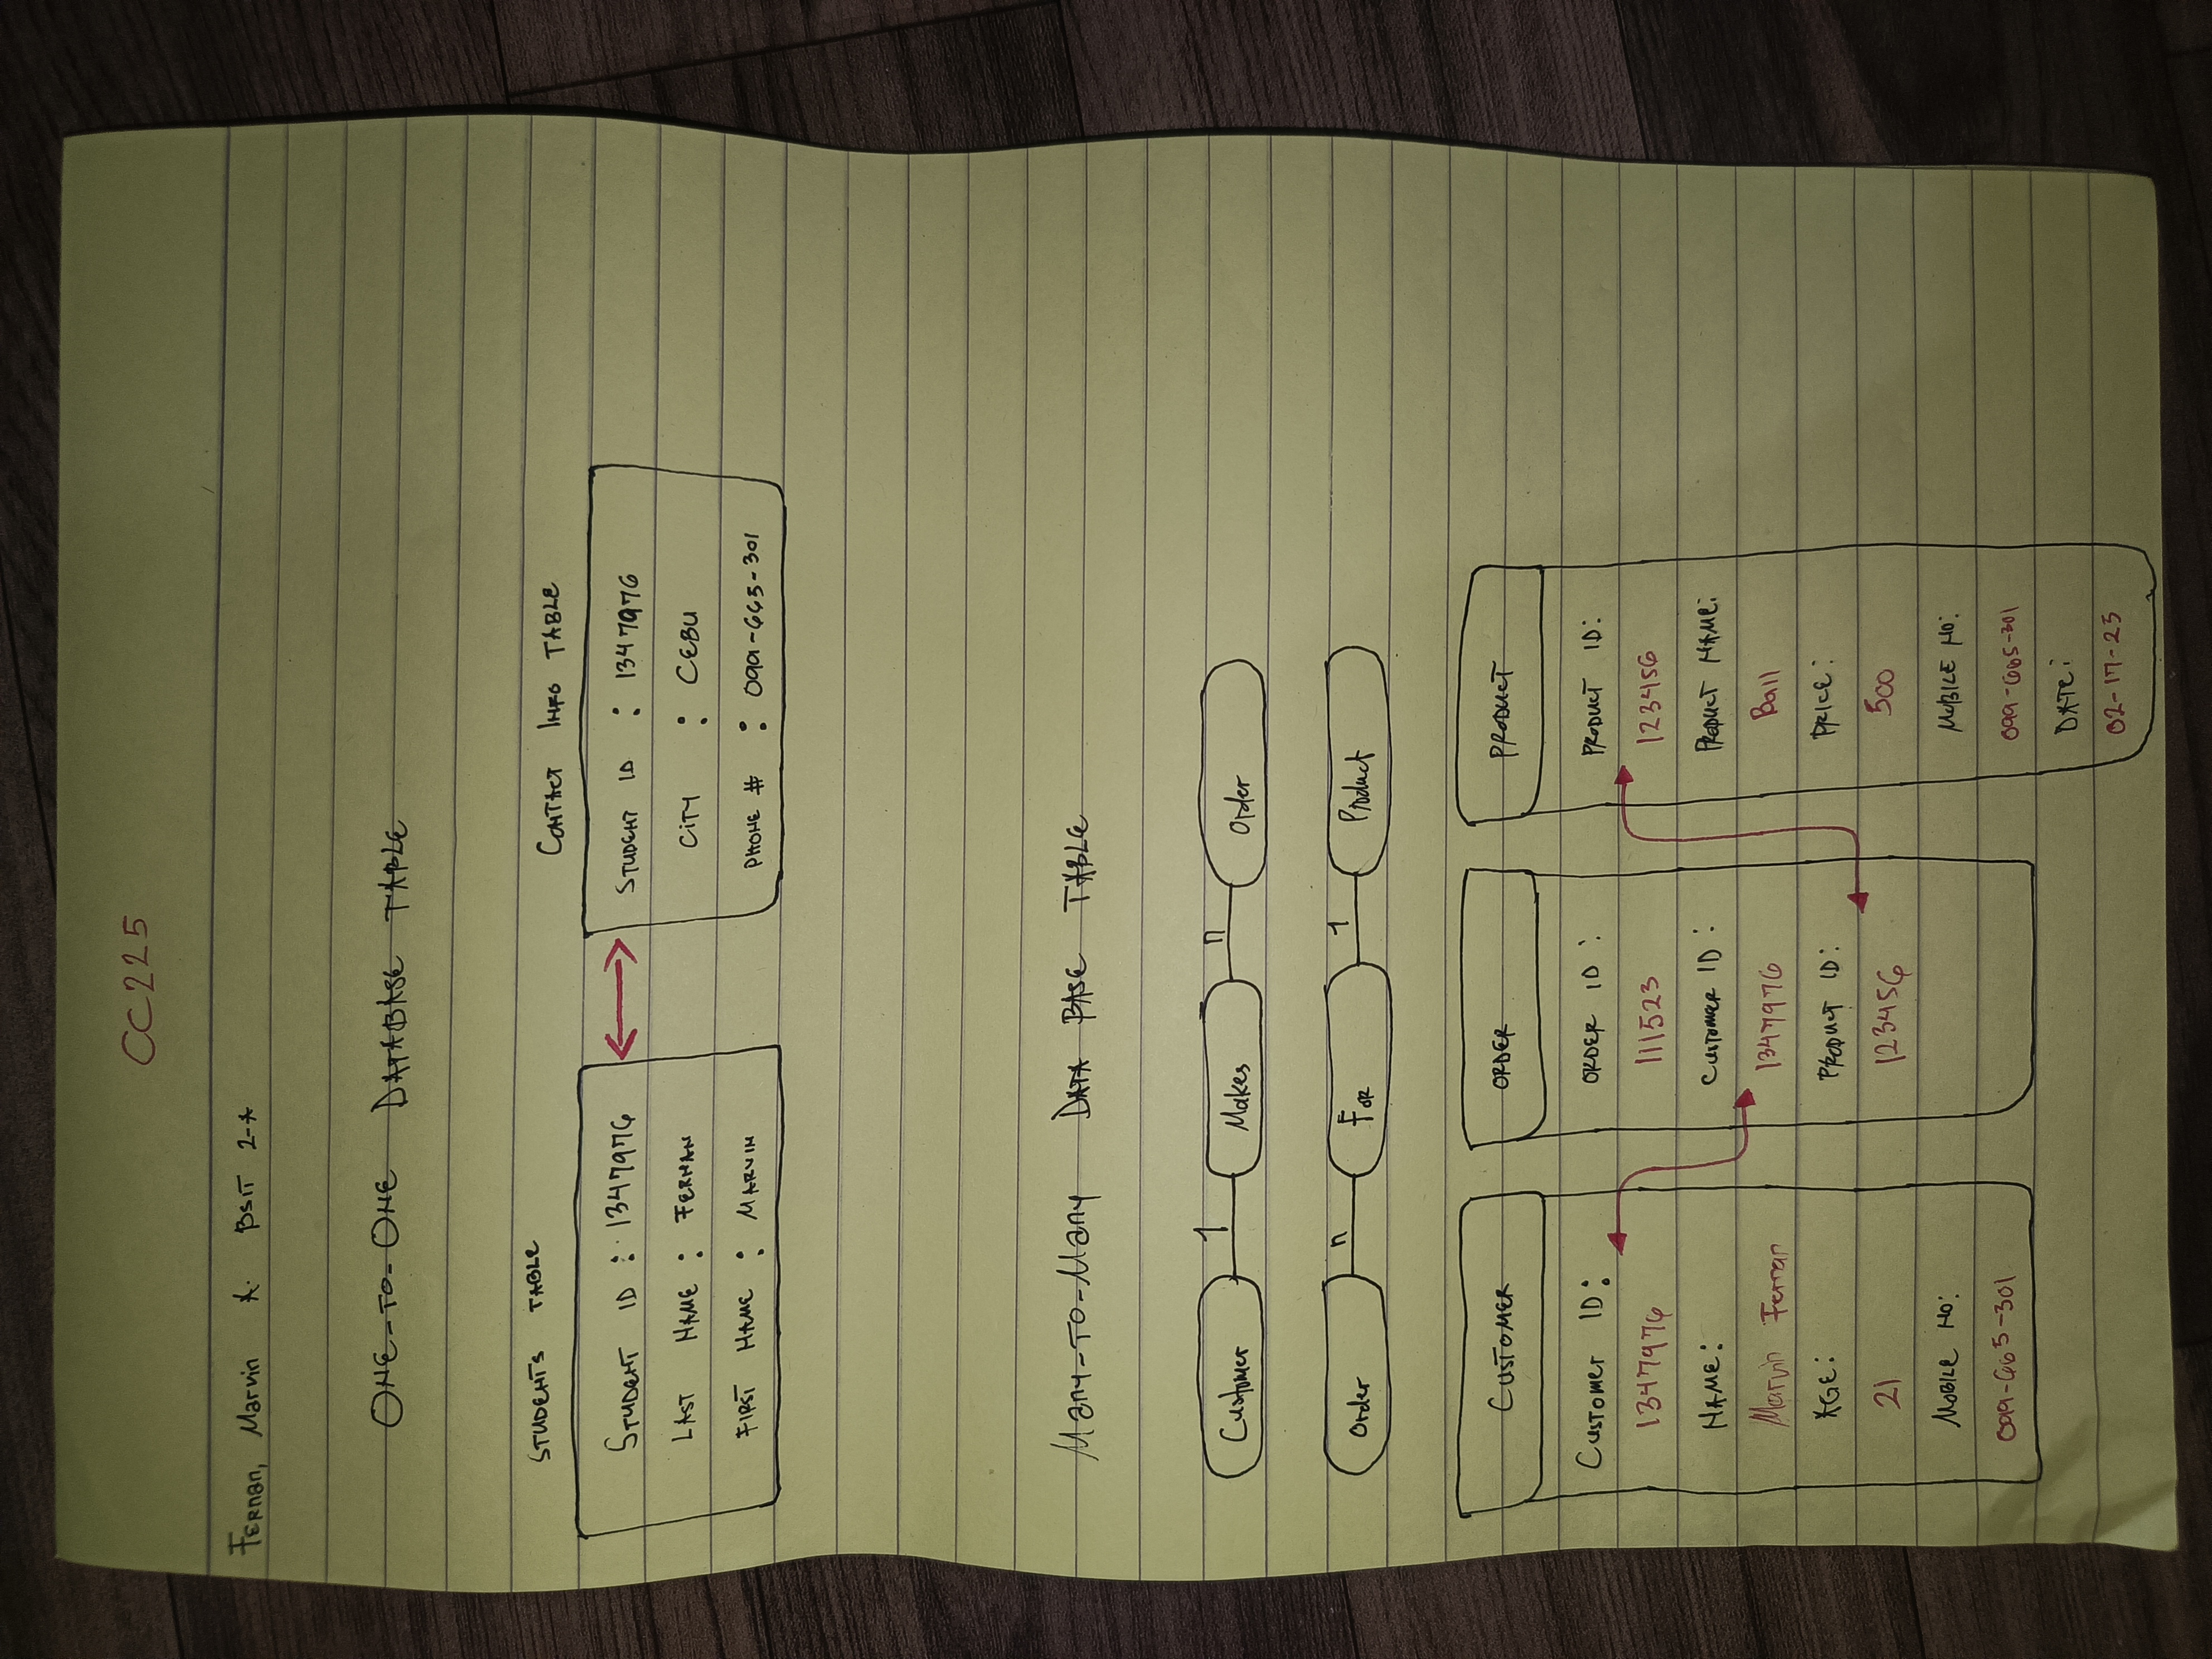 CC225
Fernan, Marvin A. BSIT 2-A
ONE-TO-ONE DATABASE TABLE
STUDENTS TABLE
CONTACT INFO TABLE
STUDENT ID : 1347976
LAST NAME : FERNAN
FIRST NAME : MARVIN
STUDENT ID : 1347976
CITY : CEBU
PHONE # : 099-665-301
Many-TO-Many DATA BASE TABLE
Customer 1 Makes n Order
Order n For 1 Product
CUSTOMER
CUSTOMER ID:
1347976
NAME:
Marvin Fernan
AGE:
21
MOBILE NO:
099-665-301
ORDER
ORDER ID:
111523
CUSTOMER ID:
1347976
PRODUCT ID:
123456
PRODUCT
PRODUCT ID:
123456
PRODUCT NAME:
Ball
PRICE:
500
MOBILE NO:
099-665-301
DATE:
02-17-23